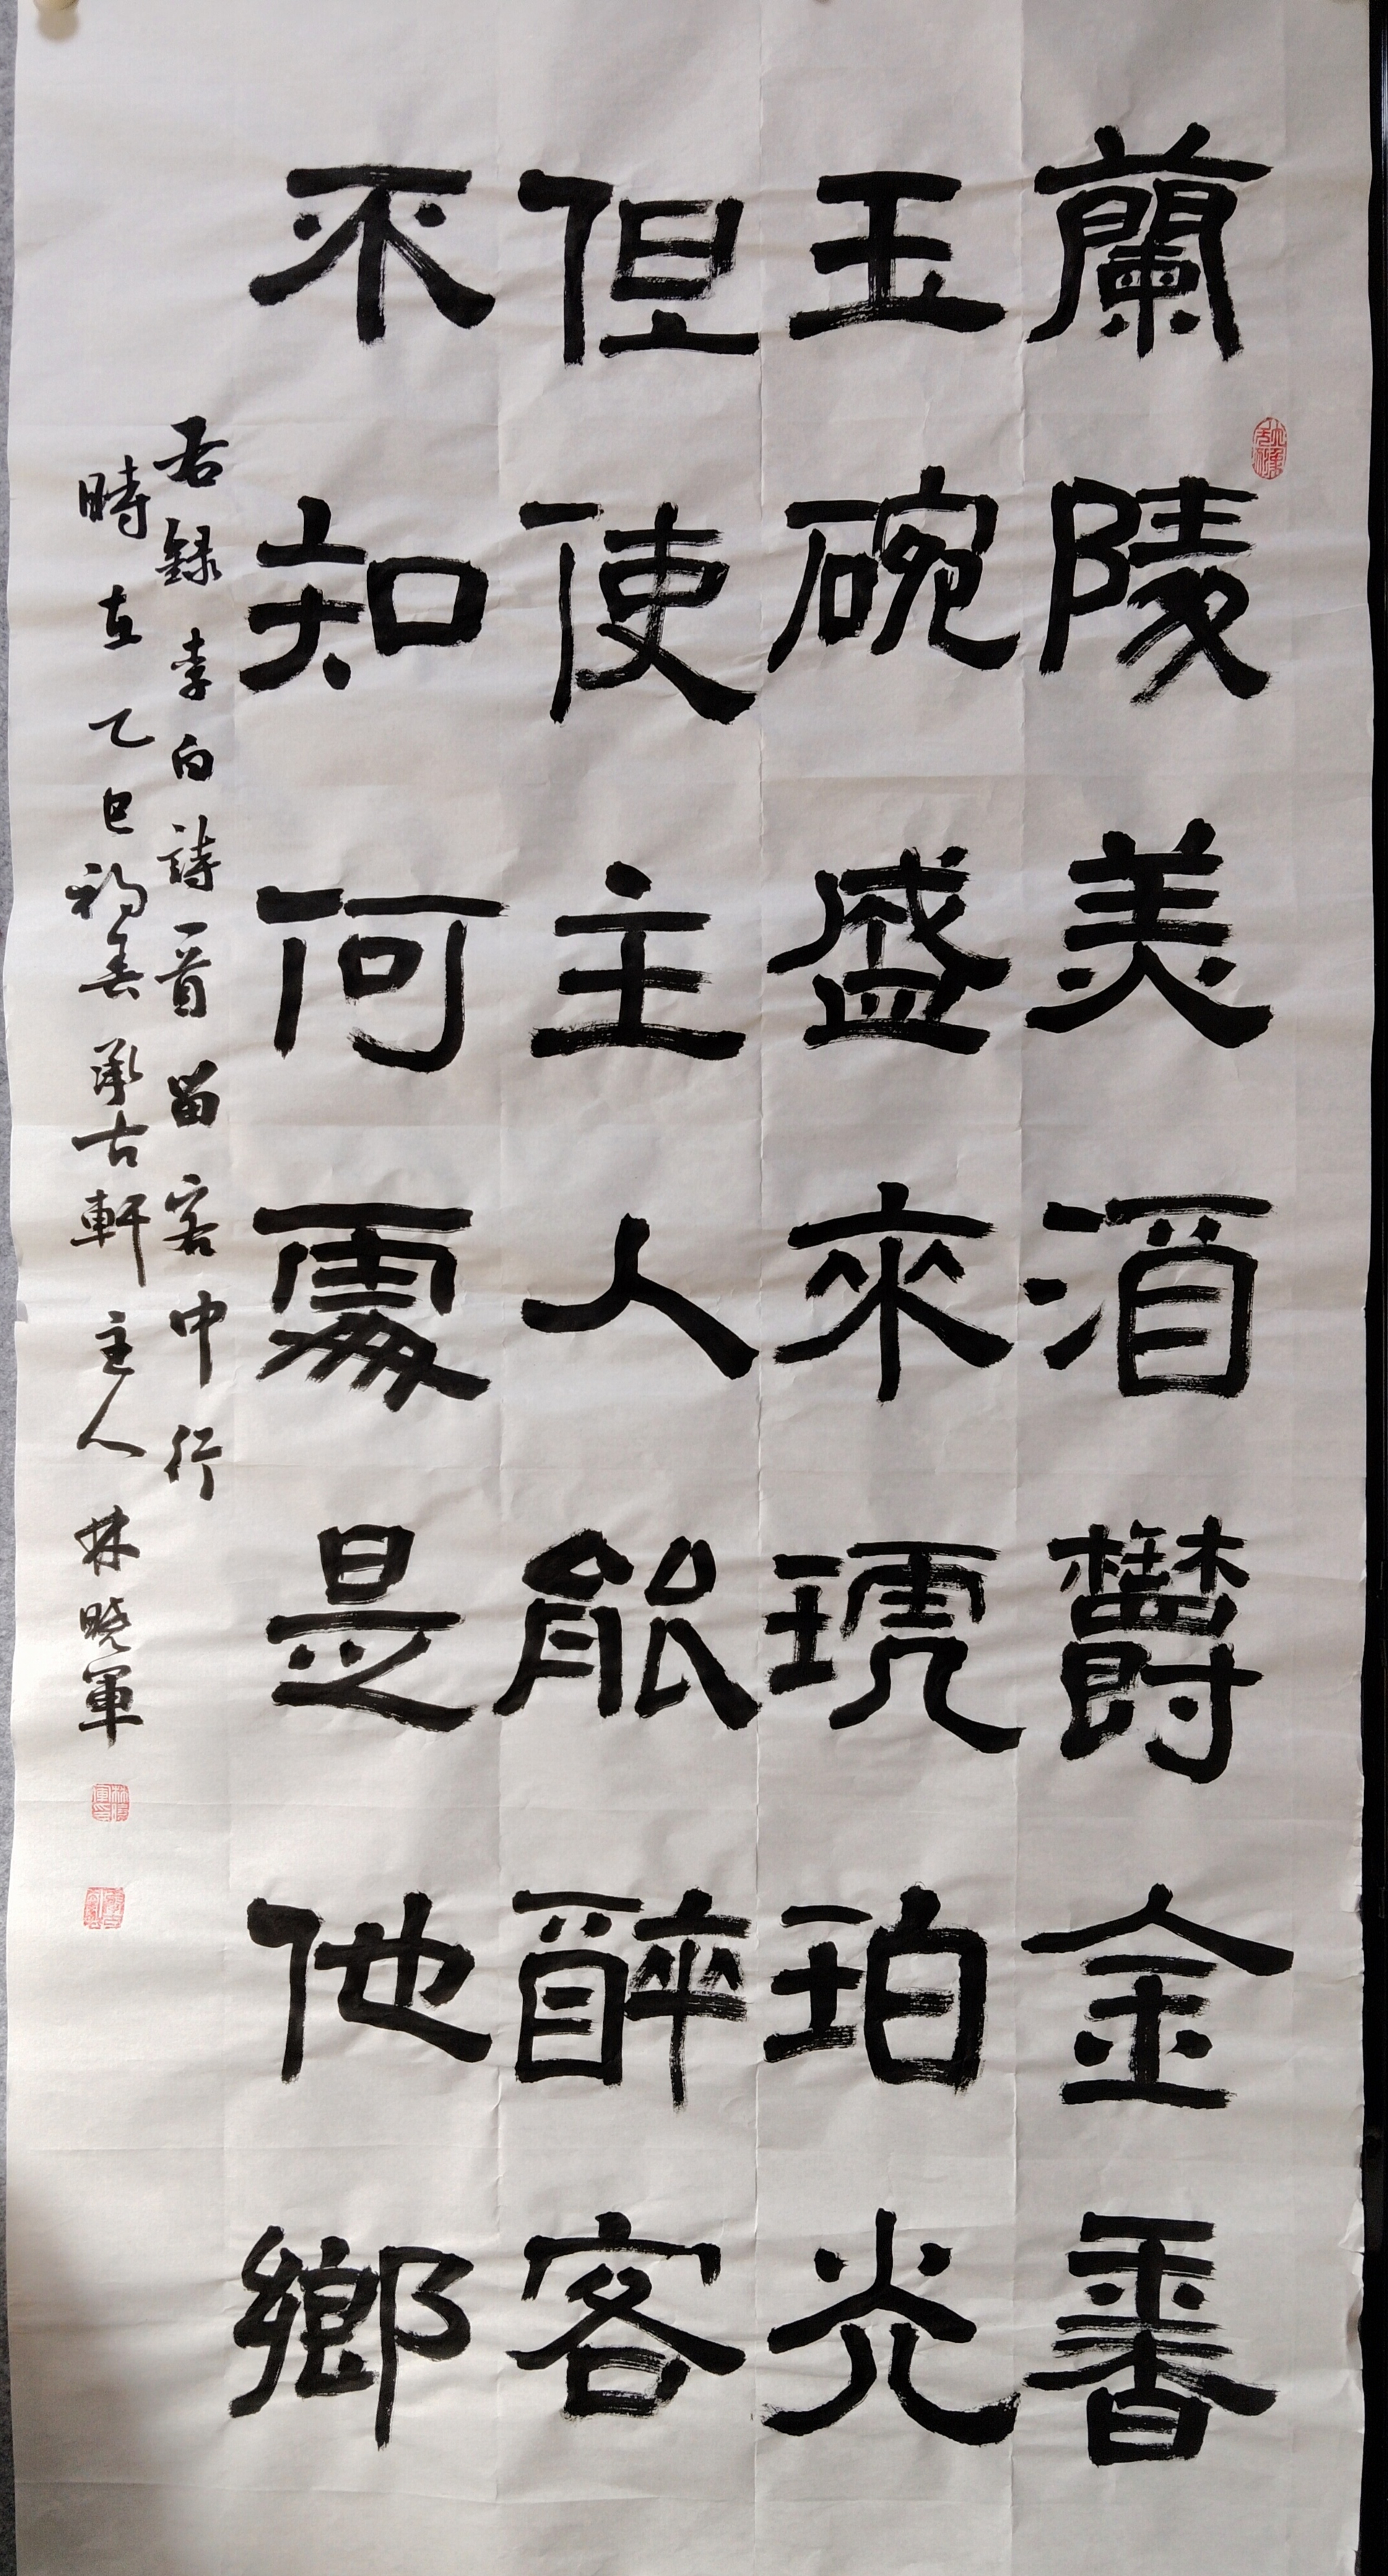 蘭陵美酒鬱金香
玉碗盛來琥珀光
但使主人能醉客
不知何處是他鄉
右録李白詩一首留客中行
時在乙巳初春承古軒主人林曉軍